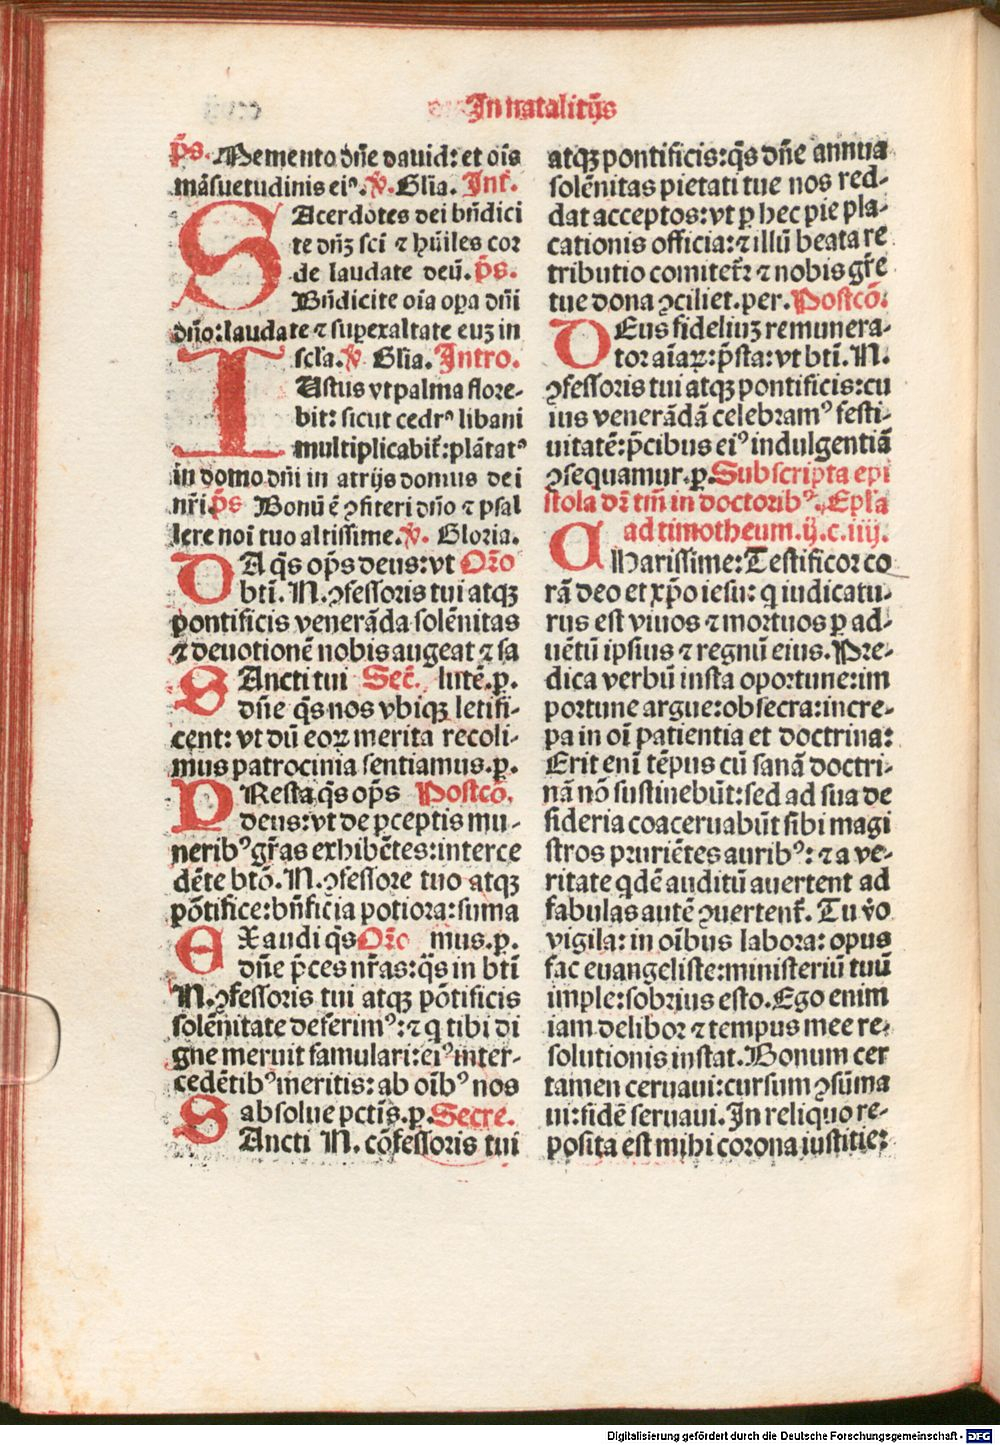 In natalitijs
p̄s. Memento dn̄e dauid: et oīs
māsuetudinis eiꝰ. ℣. Glīa. Int̄.
SAcerdotes dei bn̄dici
te dn̄ꝫ sci ⁊ hūiles cor
de laudate deū. p̄s.
Bn̄dicite oīa oꝑa dn̄i
dn̄o: laudate ⁊ suꝑexaltate euꝫ in
scl̄a. ℣ Glīa. Intro.
IUstus vt palma flore-
bit: sicut cedrꝰ libani
multiplicabit̄: plātatꝰ
in domo dn̄i in atrijs domus dei
nr̄i. p̄s Bonū ē ꝯfiteri dn̄o ⁊ psal
lere noi tuo altissime. ℣. Gloria.
DA q̄s op̄s deus: vt Orō
btī. N. ꝯfessoris tui atqꝫ
pontificis venerāda solēnitas
⁊ deuotionē nobis augeat ⁊ sa
SAncti tui Sec̄. lutē. ꝑ.
dn̄e q̄s nos vbiqꝫ letifi-
cent: vt dū eoꝝ merita recoli-
mus patrocinia sentiamus. ꝑ.
PResta q̄s op̄s Postcō.
deus: vt de ꝑceptis mu-
neribꝰ gr̄as exhibētes: interce
dēte btō. N. ꝯfessore tuo atqꝫ
pōtifice: bn̄ficia potiora: suma
EXaudi q̄s Orō mus. ꝑ.
dn̄e p̄ces nr̄as: q̄s in btī
N. ꝯfessoris tui atqꝫ pōtificis
solēnitate deferimꝰ: ⁊ q tibi di
gne meruit famulari: eiꝰ inter-
cedētibꝰ meritis: ab oībꝰ nos
absolue pctīs. ꝑ. Secre.
SAncti N. cōfessoris tui
atqꝫ pontificis: q̄s dn̄e annua
solēnitas pietati tue nos red-
dat acceptos: vt ꝑ hec pie pla-
cationis officia: ⁊ illū beata re
tributio comitet̄ ⁊ nobis gr̄e
tue dona ꝯciliet. per. Postcō.
DEus fideliuꝫ remunera-
tor aīaꝝ: p̄sta: vt btī. N.
ꝯfessoris tui atqꝫ pontificis: cu
ius venerādā celebramꝰ festi-
uitatē: p̄cibus eiꝰ indulgentiā
ꝯsequamur. ꝑ. Subscripta epi
stola dr̄ tm̄ in doctoribꝰ. Epl̄a
ad timotheum. ij. c. iiij.
CHarissime: Testificor co
rā deo et xp̄o iesu: q iudicatu-
rus est viuos ⁊ mortuos ꝑ ad-
uētū ipsius ⁊ regnū eius. Pre-
dica verbū insta oportune: im
portune argue: obsecra: incre-
pa in oī patientia et doctrina:
Erit enī tēpus cū sanā doctri-
nā nō sustinebūt: sed ad sua de
sideria coaceruabūt sibi magi
stros pruriētes auribꝰ: ⁊ a ve-
ritate qdē auditū auertent ad
fabulas autē ꝯuertent̄. Tu v̄o
vigila: in oībus labora: opus
fac euangeliste: ministeriū tuū
imple: sobrius esto. Ego enim
iam delibor ⁊ tempus mee re-
solutionis instat. Bonum cer
tamen ceruaui: cursum ꝯsūma
ui: fidē seruaui. In reliquo re-
posita est mihi corona iustitie:
Digitalisierung gefördert durch die Deutsche Forschungsgemeinschaft - DFG